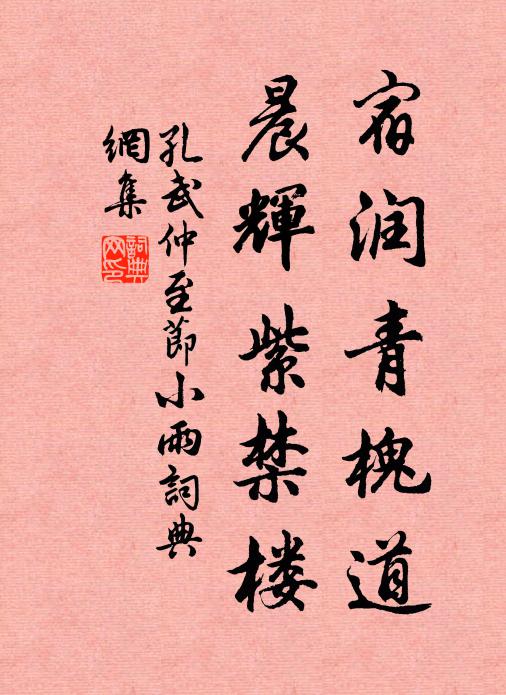 宿润青槐道
晨輝紫禁楼
孔武仲至節小雨詞典
網集
詞典网印